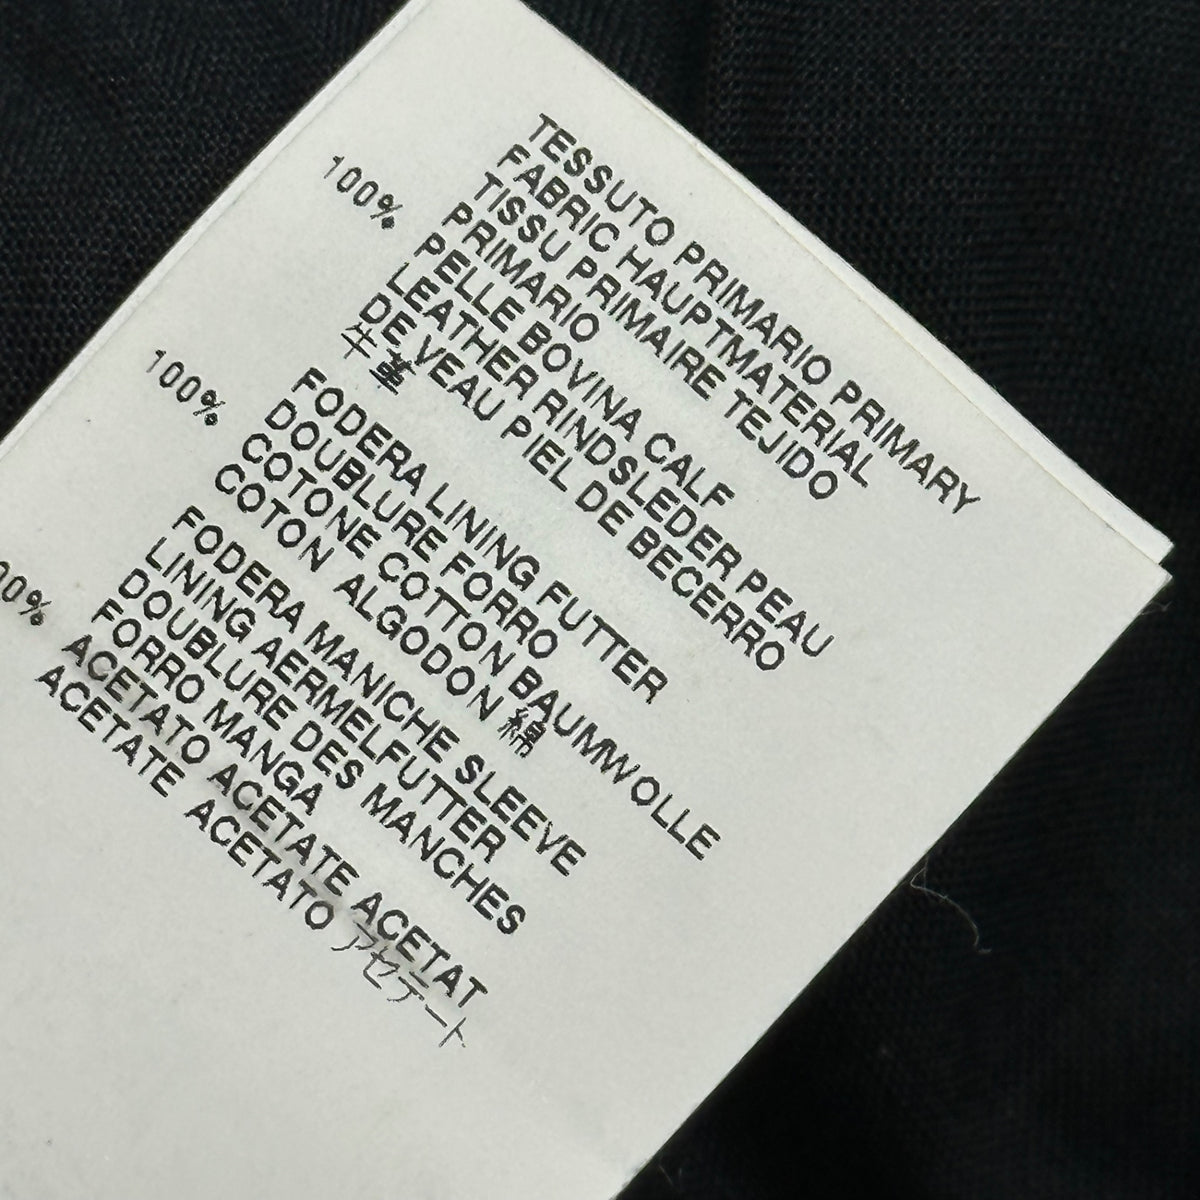 TESSUTO PRIMARIO PRIMARY
FABRIC HAUPTMATERIAL
TISSU PRIMAIRE TEJIDO
PRIMARIO
100% PELLE BOVINA CALF
LEATHER RINDSLEDER PEAU
DE VEAU PIEL DE BECERRO
牛革
FODERA LINING FUTTER
DOUBLURE FORRO
100% COTONE COTTON BAUMWOLLE
COTON ALGODON 綿
FODERA MANICHE SLEEVE
LINING AERMELFUTTER
DOUBLURE DES MANCHES
FORRO MANGA
00% ACETATO ACETATE ACETAT
ACETATE ACETATO アセテート